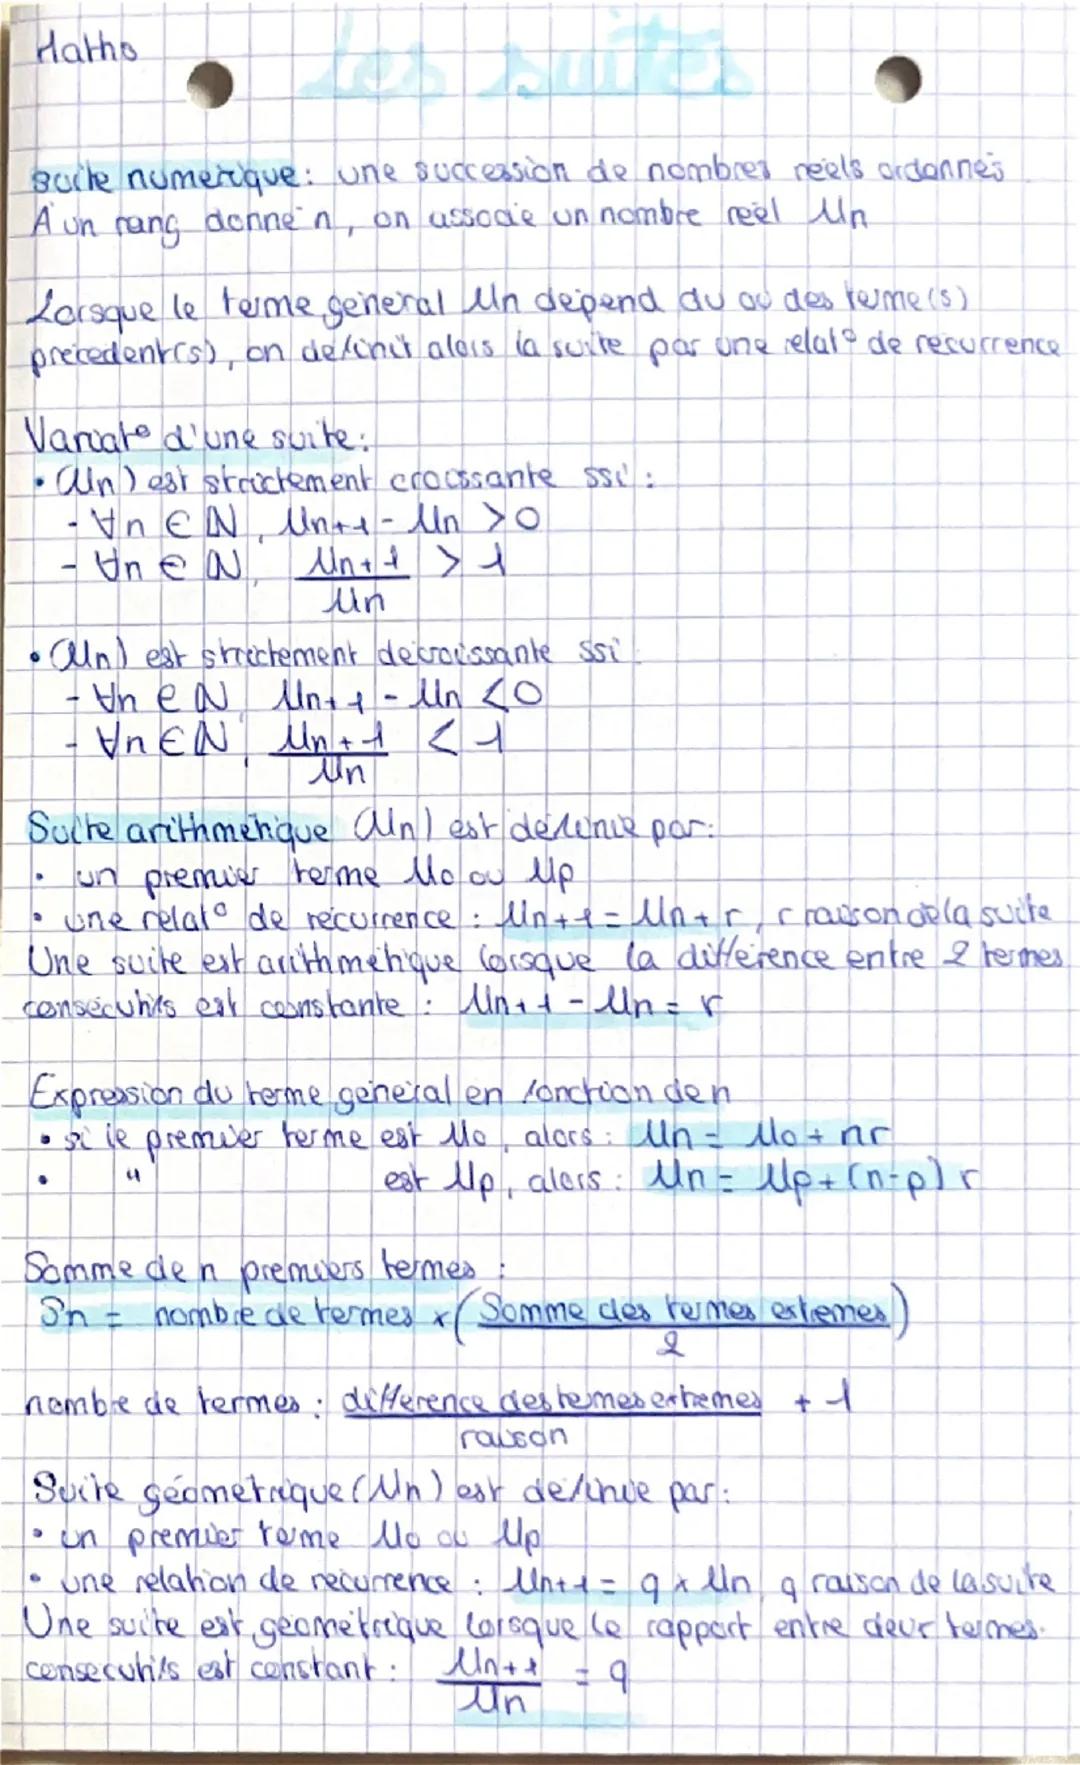 Maths
les suites
suite numérique : une succession de nombres réels ordonnés
A un rang donné n, on associe un nombre réel Un
Lorsque le terme général Un dépend du ou des terme(s)
précédent(s), on définit alors la suite par une relat° de récurrence
Variat° d'une suite :
• (Un) est strictement croissante ssi :
- ∀n ∈ ℕ, Un+1 - Un > 0
- ∀n ∈ ℕ, Un+1 / Un > 1
• (Un) est strictement décroissante ssi :
- ∀n ∈ ℕ, Un+1 - Un < 0
- ∀n ∈ ℕ, Un+1 / Un < 1
Suite arithmétique (Un) est définie par :
• un premier terme U0 ou Up
• une relat° de récurrence : Un+1 = Un + r, r raison de la suite
Une suite est arithmétique lorsque la différence entre 2 termes
consécutifs est constante : Un+1 - Un = r
Expression du terme général en fonction de n
• si le premier terme est U0, alors : Un = U0 + nr
• " est Up, alors : Un = Up + (n-p) r
Somme de n premiers termes :
Sn = nombre de termes x (Somme des termes extrêmes / 2)
nombre de termes : différence des termes extrêmes / raison + 1
Suite géométrique (Un) est définie par :
• un premier terme U0 ou Up
• une relation de récurrence : Un+1 = q x Un, q raison de la suite
Une suite est géométrique lorsque le rapport entre deux termes
consécutifs est constant : Un+1 / Un = q